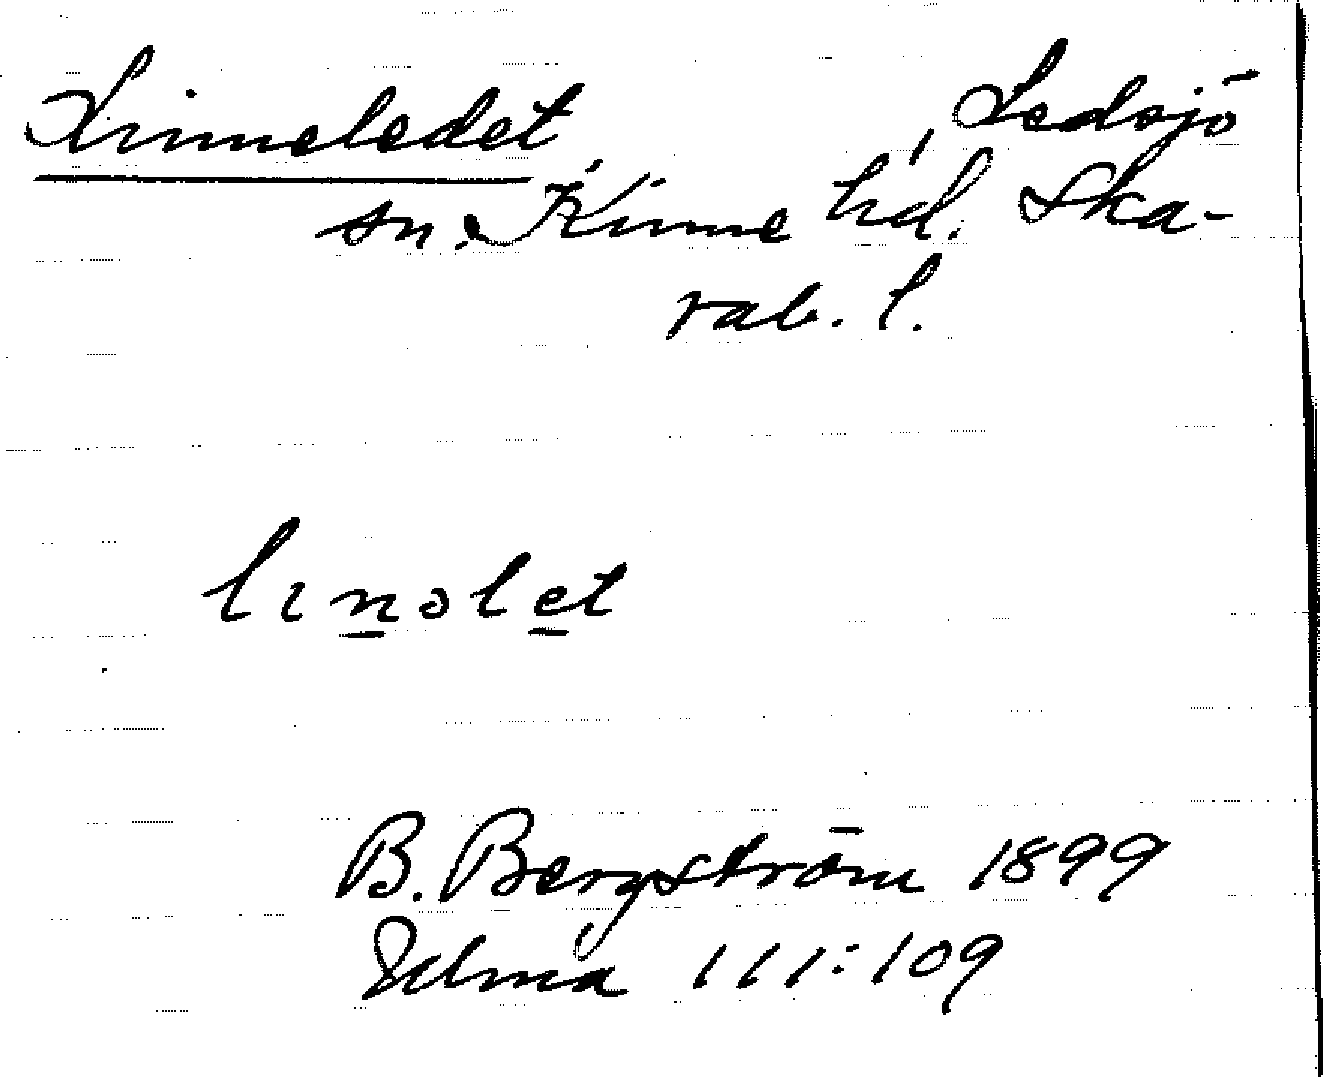 Linneledet, Ledsjö
sn. Kinne hd. Ska-
rab. l.
linolet
B. Bergström 1899
Ulma 111:109